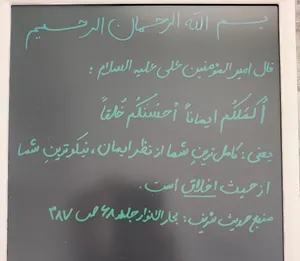 بسم الله الرحمان الرحیم
قال امیر المؤمنین علی علیه السلام :
أکمَلُکُم ایماناً أحسَنُکُم خُلقاً
یعنی : کامل ترین شما از نظر ایمان ، نیکوترین شما
از حیث اخلاق است .
منبع حدیث شریف : بحار الانوار جلد ۶۸ ص ۳۸۷